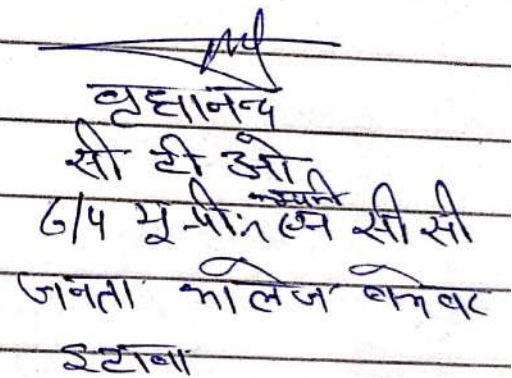 वृह्मानन्द
सी टी ओ
6/4 यू.पी. कम्पनी एन सी सी
जनता कालेज बकेवर
इटावा